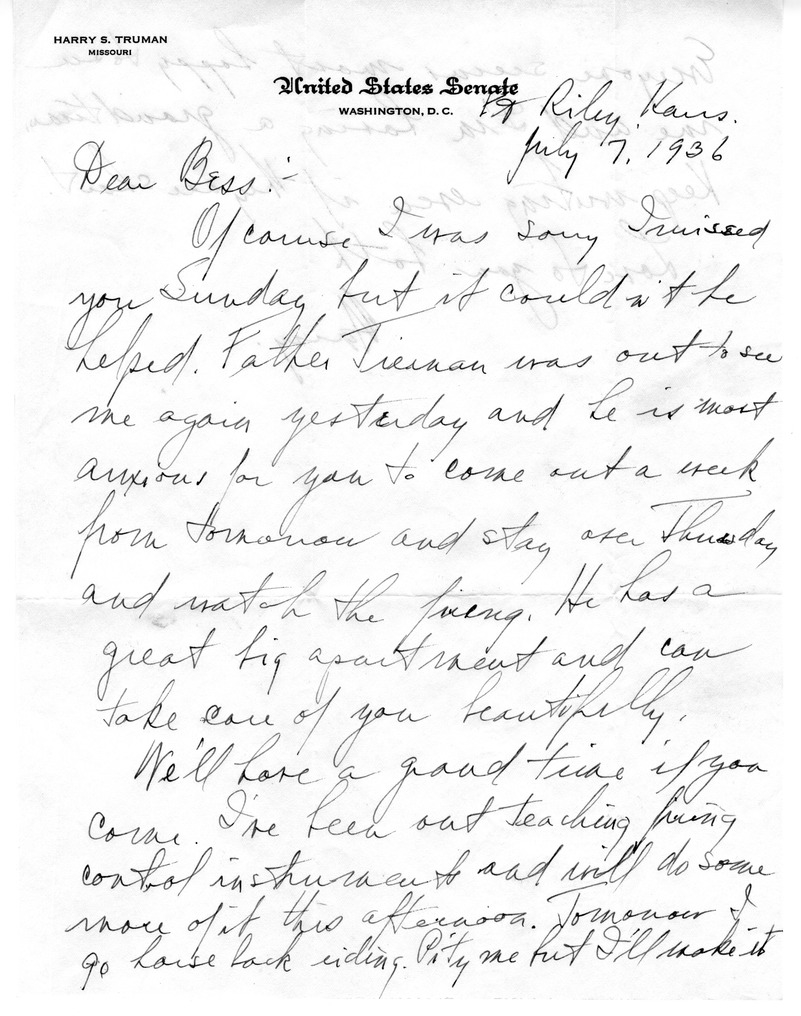 HARRY S. TRUMAN
MISSOURI
United States Senate
WASHINGTON, D. C.
Ft Riley, Kans.
July 7, 1936
Dear Bess:-
Of course I was sorry I missed
you Sunday but it couldn't be
helped. Father Tiernan was out to see
me again yesterday and he is most
anxious for you to come out a week
from tomorrow and stay over Thursday
and watch the firing. He has a
great big apartment and can
take care of you beautifully.
We'll have a grand time if you
come. I've been out teaching firing
control instruments and will do some
more of it this afternoon. Tomorrow I
go horse back riding. Pity me but I'll make it